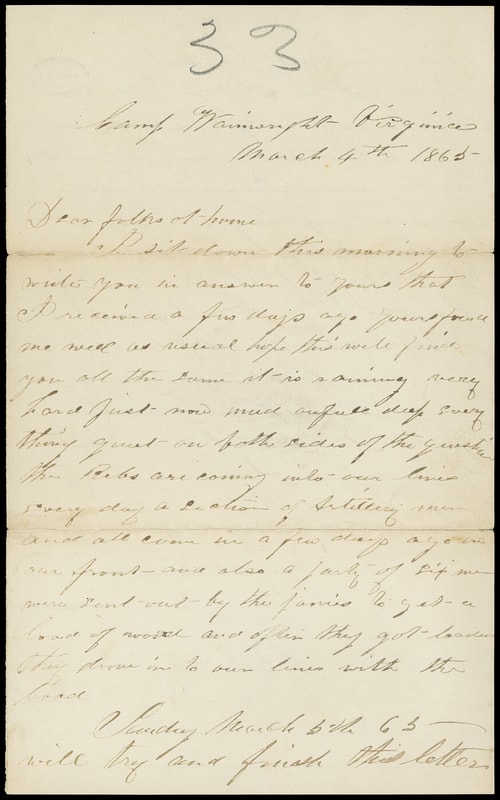 33
Camp Wainwright Virginia
March 4th 1865
Dear folks at home
I sit down this morning to
write you in answer to yours that
I received a few days ago yours found
me well as usual hope this will find
you all the same it is raining very
hard just now mud awfull deep every
thing quiet on both sides of the question
the Rebs are coming into our lines
every day a section of Artillery men
and all come in a few days ago in
our front and also a party of six men
were sent out by the jonies to get a
load of wood and after they got loaded
they drove in to our lines with the
load
Sunday March 5th 65
will try and finish this letter